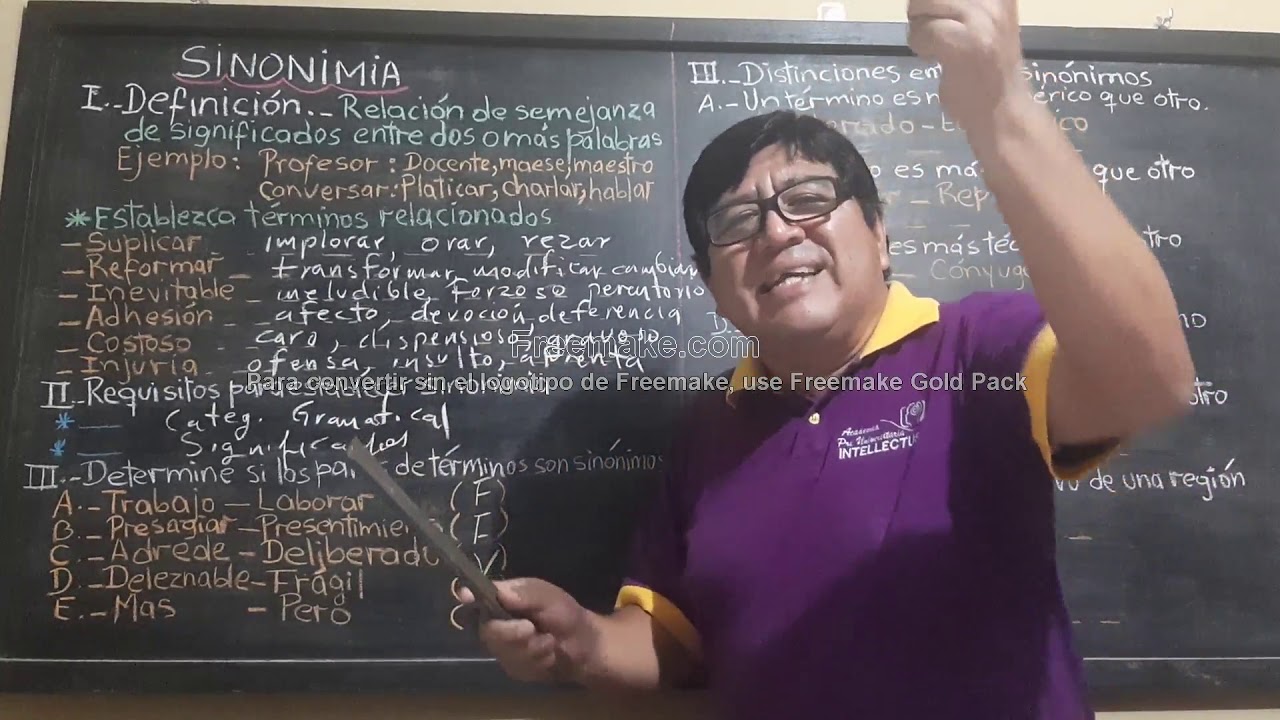 SINONIMIA
I.-Definición.-Relación de semejanza
de significados entre dos o más palabras
Ejemplo: Profesor: Docente, maese, maestro
Conversar: Platicar, charlar, hablar
*Establezca términos relacionados
-Suplicar implorar, orar, rezar
-Reformar - transformar, modificar, cambiar
-Inevitable - ineludible, forzoso
-Adhesión - afecto, devoción, deferencia
-Costoso - caro, dispensioso,
-Injuria - ofensa, insulto, afrenta
II.-Requisitos para
* Categ. Gramatical
* Significados
III.-Determine si los de términos son sinónimos
A.-Trabajo-Laborar (F)
B.-Presagiar-Presentimie (F)
C.-Adrede-Deliberado (V)
D.-Deleznable-Frágil (
E.-Mas - Pero (
III.-Distinciones sinónimos
A.-Un término es que otro.
es que otro
- Rep
es más
- Conyug
de una región
Freemake.com
Para convertir sin el logotipo de Freemake, use Freemake Gold Pack
Academia
Pre Universitaria
INTELLECTUS